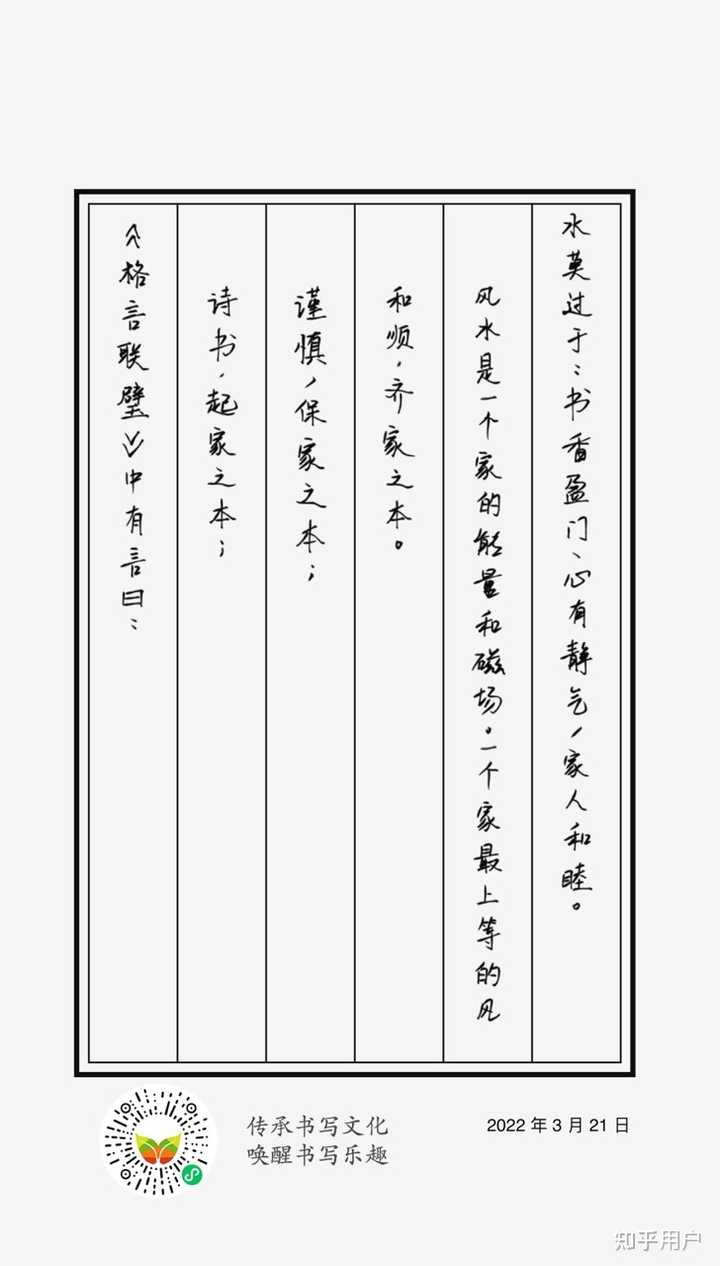 《格言联璧》中有言曰：
诗书，起家之本；
谨慎，保家之本；
和顺，齐家之本。
风水是一个家的能量和磁场。一个家最上等的风
水莫过于：书香盈门、心有静气，家人和睦。
传承书写文化
唤醒书写乐趣
2022 年 3 月 21 日
知乎用户